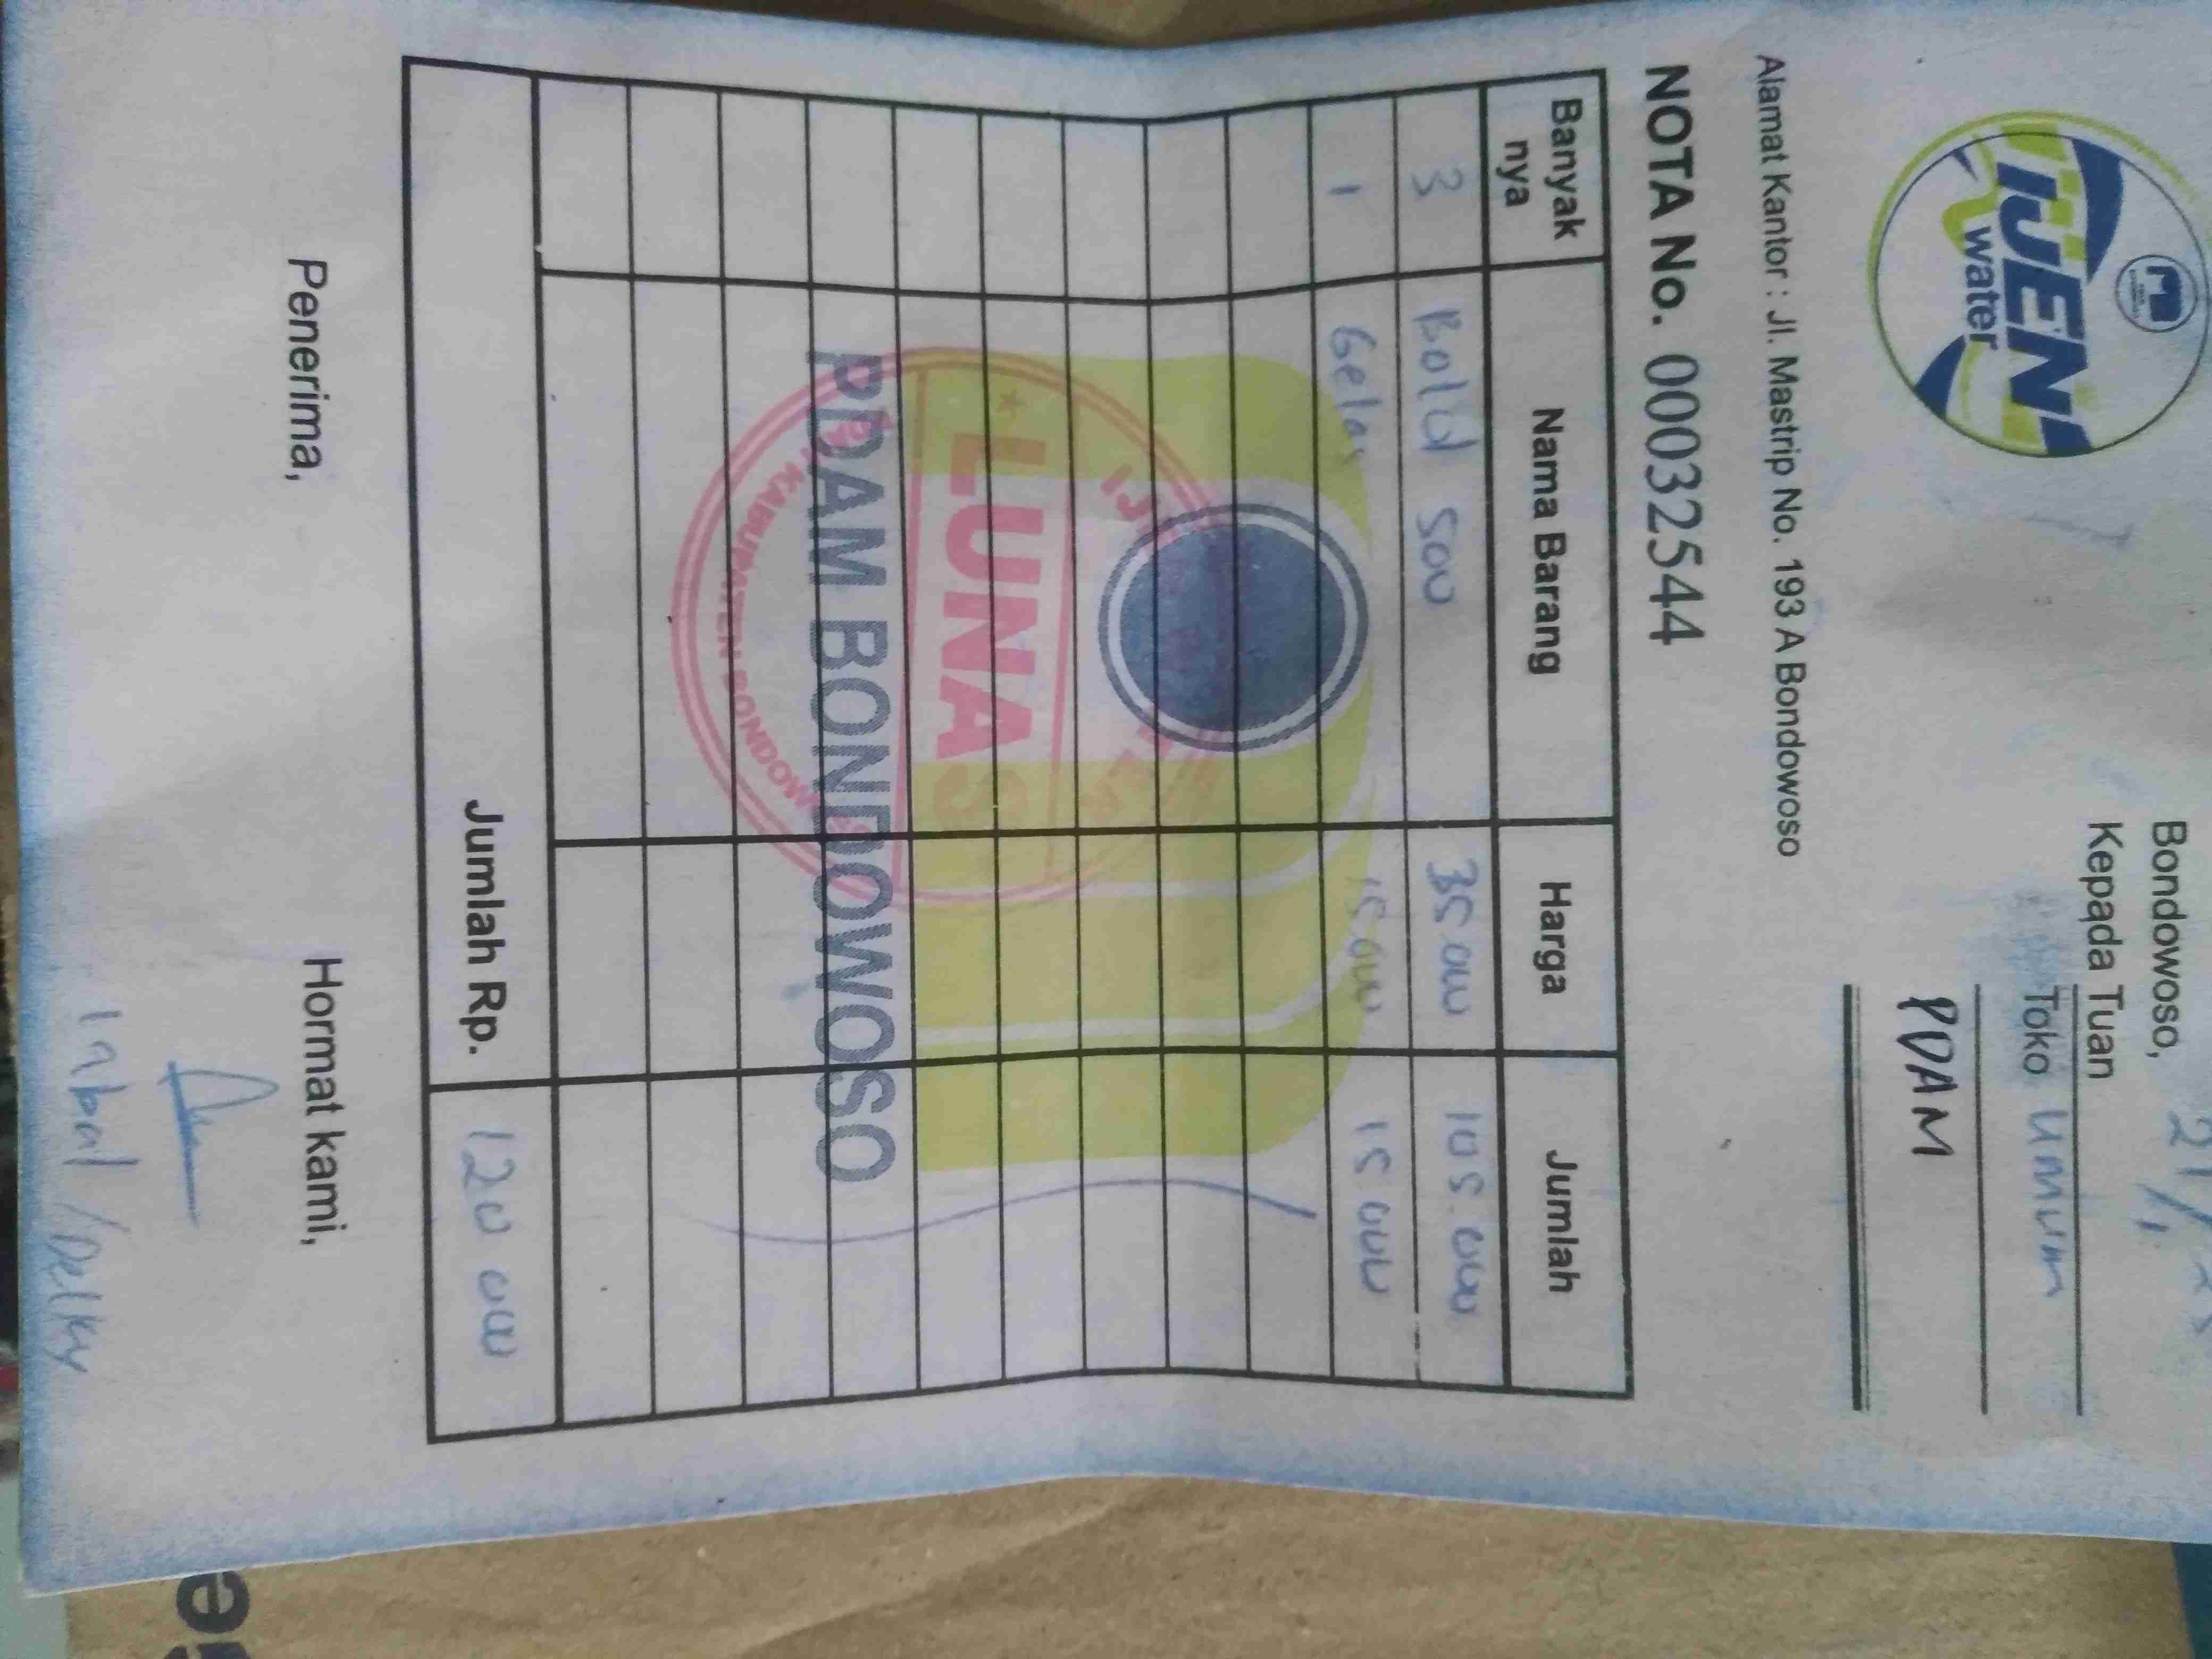 IJEN
water
Bondowoso, 21/1
Kepada Tuan
Toko umum
PDAM
Alamat Kantor : Jl. Mastrip No. 193 A Bondowoso
NOTA No. 00032544
Banyak nya Nama Barang Harga Jumlah
3 Botol 500 35 000 105.000
1 Gelas 15.000 15 000
LUNAS
KABUPATEN BONDOWOSO
PDAM BONDOWOSO
Jumlah Rp. 120 000
Penerima, Hormat kami,
Iqbal / Delky